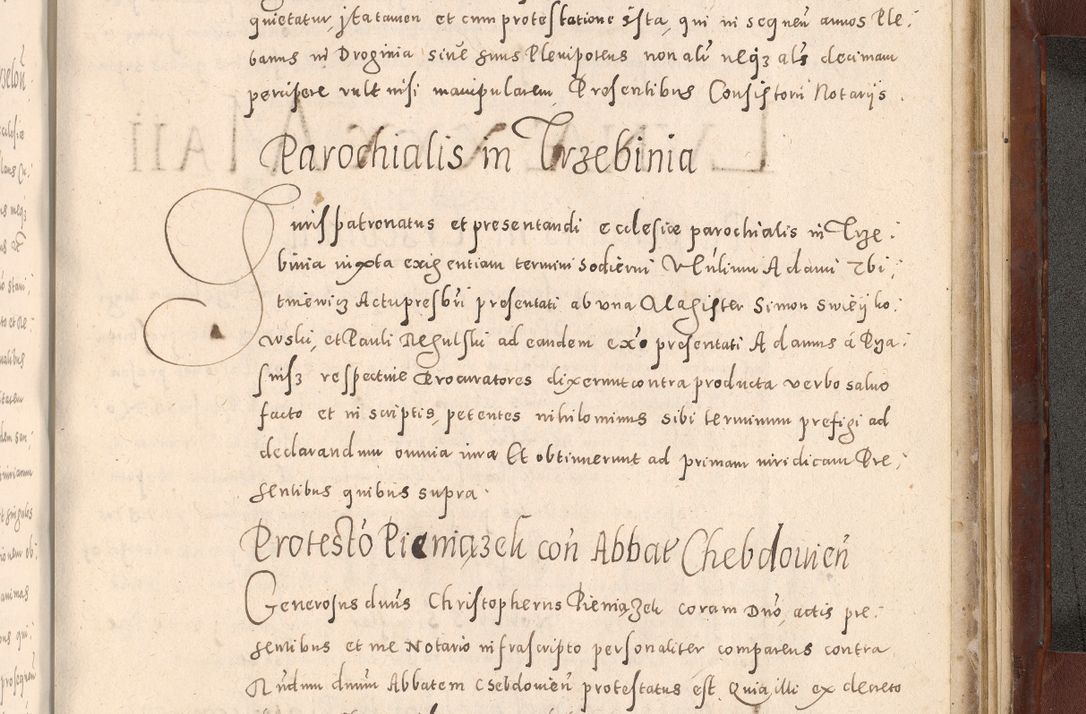 quietatur, ita tamen et cum protestatione ista, qui in sequen̄ annos Ple:
banus in Droginia sive suus Plenipotens non alr̄ neqȝ als̄ decimam
percipere vult nisi manipularem, Presentibus Consistorii Notarijs.
Parochialis in Trzebinia
Iuris patronatus et presentandi ecclesiæ parochialis in Trze:
binia iuxta exigentiam termini hodierni Adami Zbi:
tniewicz Actu presbr̄i presentati ab vna Magister Simon Swiēijko:
wski, et Pauli Regulski ad eandem ex° presentati Adamus à Rya:
respective Procuratores dixerunt contra producta verbo salvo
facto et in scriptis, petentes nihilominus sibi terminum prefigi ad
declarandum omnia iura Et obtinuerunt ad primam iuridicam Pre:
sentibus quibus supra.
Protestō Pieniązek con̄ Abbat̄ Chebdovien̄
Generosus dnūs Christopherus Pieniązek coram Dnō, actis pre:
sentibus et me Notario infrascripto personaliter comparens contra
Rn̄dum dnum Abbatem Chebdovien̄ protestatus est, Quia illi ex decreto